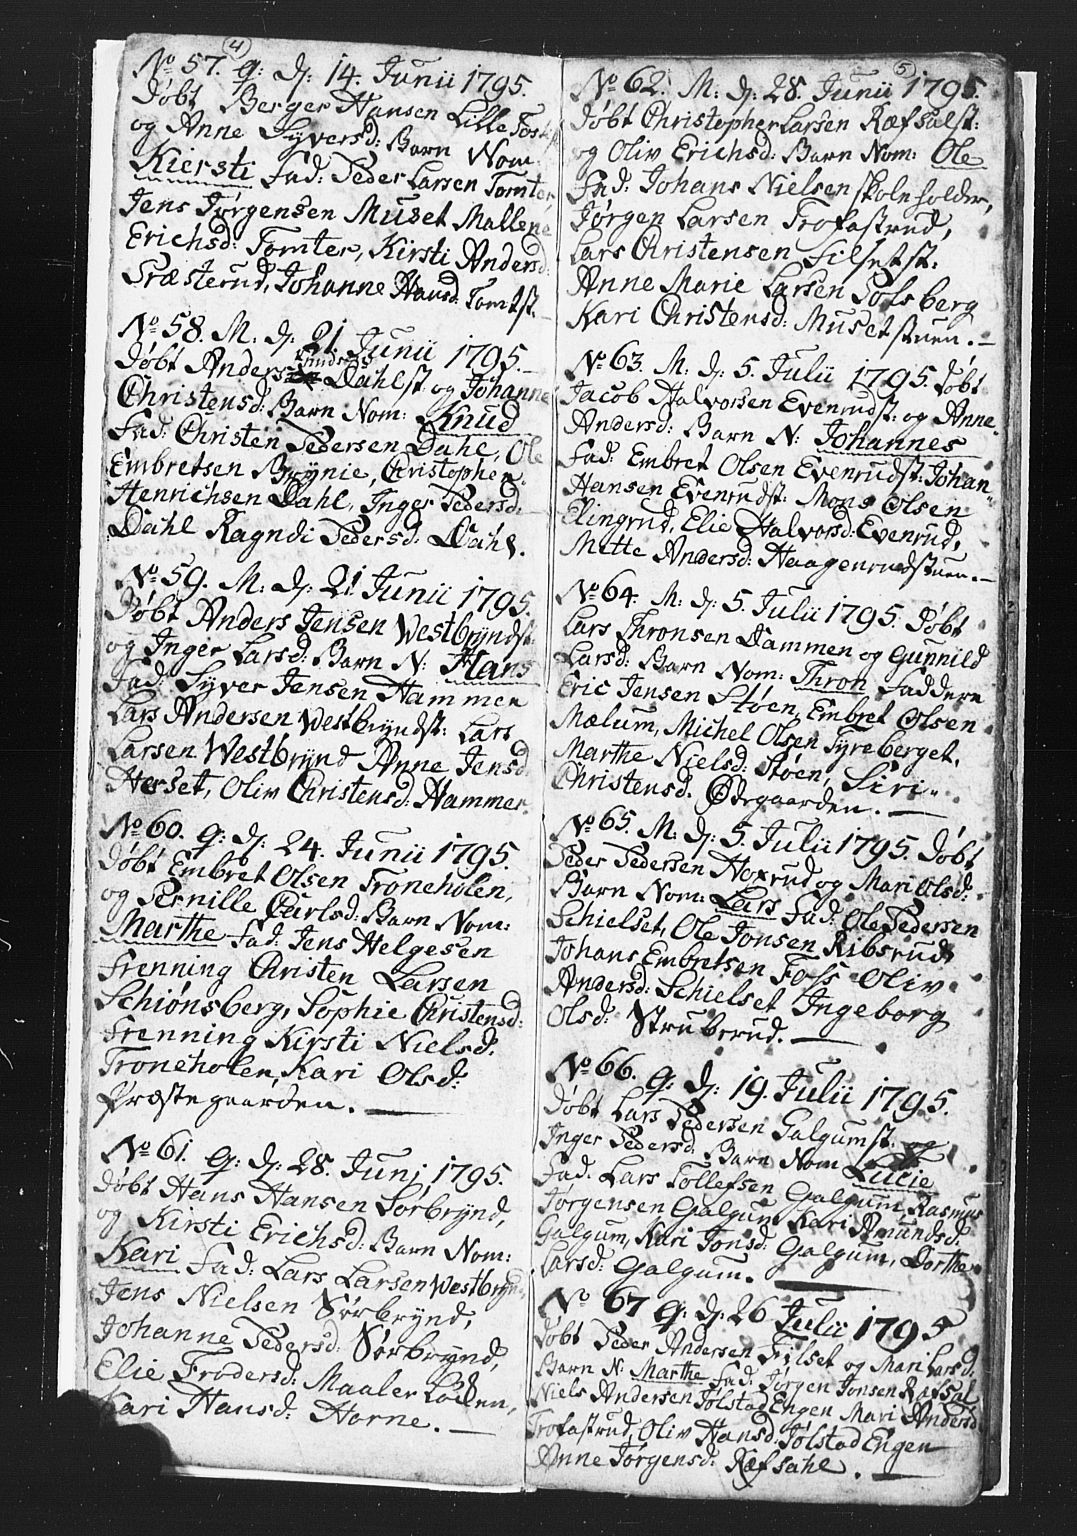 4
No 57. q: d: 14. Junii 1795.
Døbt Berger Hansen Lille
og Anne Syversd: Barn Nom:
Kiersti Fad: Peder Larsen Tomter
Jens Jørgensen Muset Mallene
Erichsd: Tomter, Kirsti Andersd:
Præsterud, Johanne Hansd: Tomtst.
No 58. M. d: 21 Junii 1795.
Døbt Anders Knudsens Dahlst og Johanne
Christensd: Barn Nom: Knud
Fad: Christen Pedersen Dahl, Ole
Embretsen Brynie, Christopher
Henrichsen Dahl, Inger Pedersd:
Dahl Ragndi Pedersd: Dahl.
No 59. M. d: 21 Junii 1795.
Døbt Anders Jensen Westbryndst:
og Inger Larsd: Barn N: Hans
Fad: Syver Jensen Hammer
Lars Andersen Westbryndst: Lars
Larsen Westbrynd Anne Jensd:
Hesset, Oliv Christensd: Hammer.
No 60. q: d: 24. Junii 1795.
Døbt Embret Olsen Troneholen,
og Pernille Carlsd: Barn Nom:
Marthe Fad: Jens Helgesen
Frenning Christen Larsen
Schiønsberg, Sophie Christensd:
Frenning Kirsti Nielsd.
Troneholen, Kari Olsd:
Præstegaarden.
No 61. q: d: 28. Junj 1795.
Døbt Hans Hansen Sørbrynd,
og Kirsti Erichsd: Barn Nom:
Kari Fad: Lars Larsen Westbryn
Jens Nielsen Sørbrynd,
Johanne Pedersd: Sørbrynd,
Elie Frodersd: Maaler Løcken,
Kari Hansd: Horne.
5
No 62. M: d: 28. Junii 1795.
Døbt Christopher Larsen Ræfsalst:
og Oliv Erichsd: Barn Nom: Ole
Fad: Johans Nielsen skoleholder,
Jørgen Larsen Trofastrud,
Lars Christensen Filsetst:
Anne Marie Larsen Solsberg
Kari Christensd: Musetstuen.
No 63. M: d: 5. Julii 1795. Døbt
Jacob Halvorsen Evenrudst: og Anne
Andersd: Barn N: Johannes
Fad: Embret Olsen Evenrudst: Johan
Hansen Evenrudst: Mons Olsen
Elingrud, Elie Halvorsd: Evenrud,
Mette Andersd: Haagenrudstuen.
No 64. M: d: 5. Julii 1795. Døbt
Lars Thronsen Dammen og Gunnild
Larsd: Barn Nom: Thron Faddere
Eric Jensen Støen, Embret Olsen
Mælum, Michel Olsen Tyreberget,
Marthe Nielsd: Støen, Siri
Christensd. Ødegaarden.
No 65. M. d: 5. Julii 1795. Døbt
Peder Pedersen Hoxrud og Mari Olsd:
Barn Nom: Lars Fad: Ole Pedersen
Schielset, Ole Jonsen Ribsrud,
Johans Embretsen Foss Oliv
Andersd: Schielset Ingeborg
Olsd: Struberud.
No 66. q: d: 19. Julii 1795.
Døbt Lars Pedersen Galgumst. og
Inger Pedersd. Barn Nom Lucie
Fad. Lars Tollefsen Galgum, Rasmus
Jørgensen Galgum Kari Amundsd:
Galgum, Kari Jonsd: Galgum, Dorthe
Larsd: Galgum.
No 67 q: d: 26 Julii 1795
Døbt Peder Andersen Filset og Mari Larsd:
Barn N: Marthe Fad: Jørgen Jonsen Ræfsal
Niels Andersen Jølstad Engen Mari Andersd
Trofastrud, Oliv Hansd. Jølstad Engen
Anne Jørgensd: Ræfsahl.